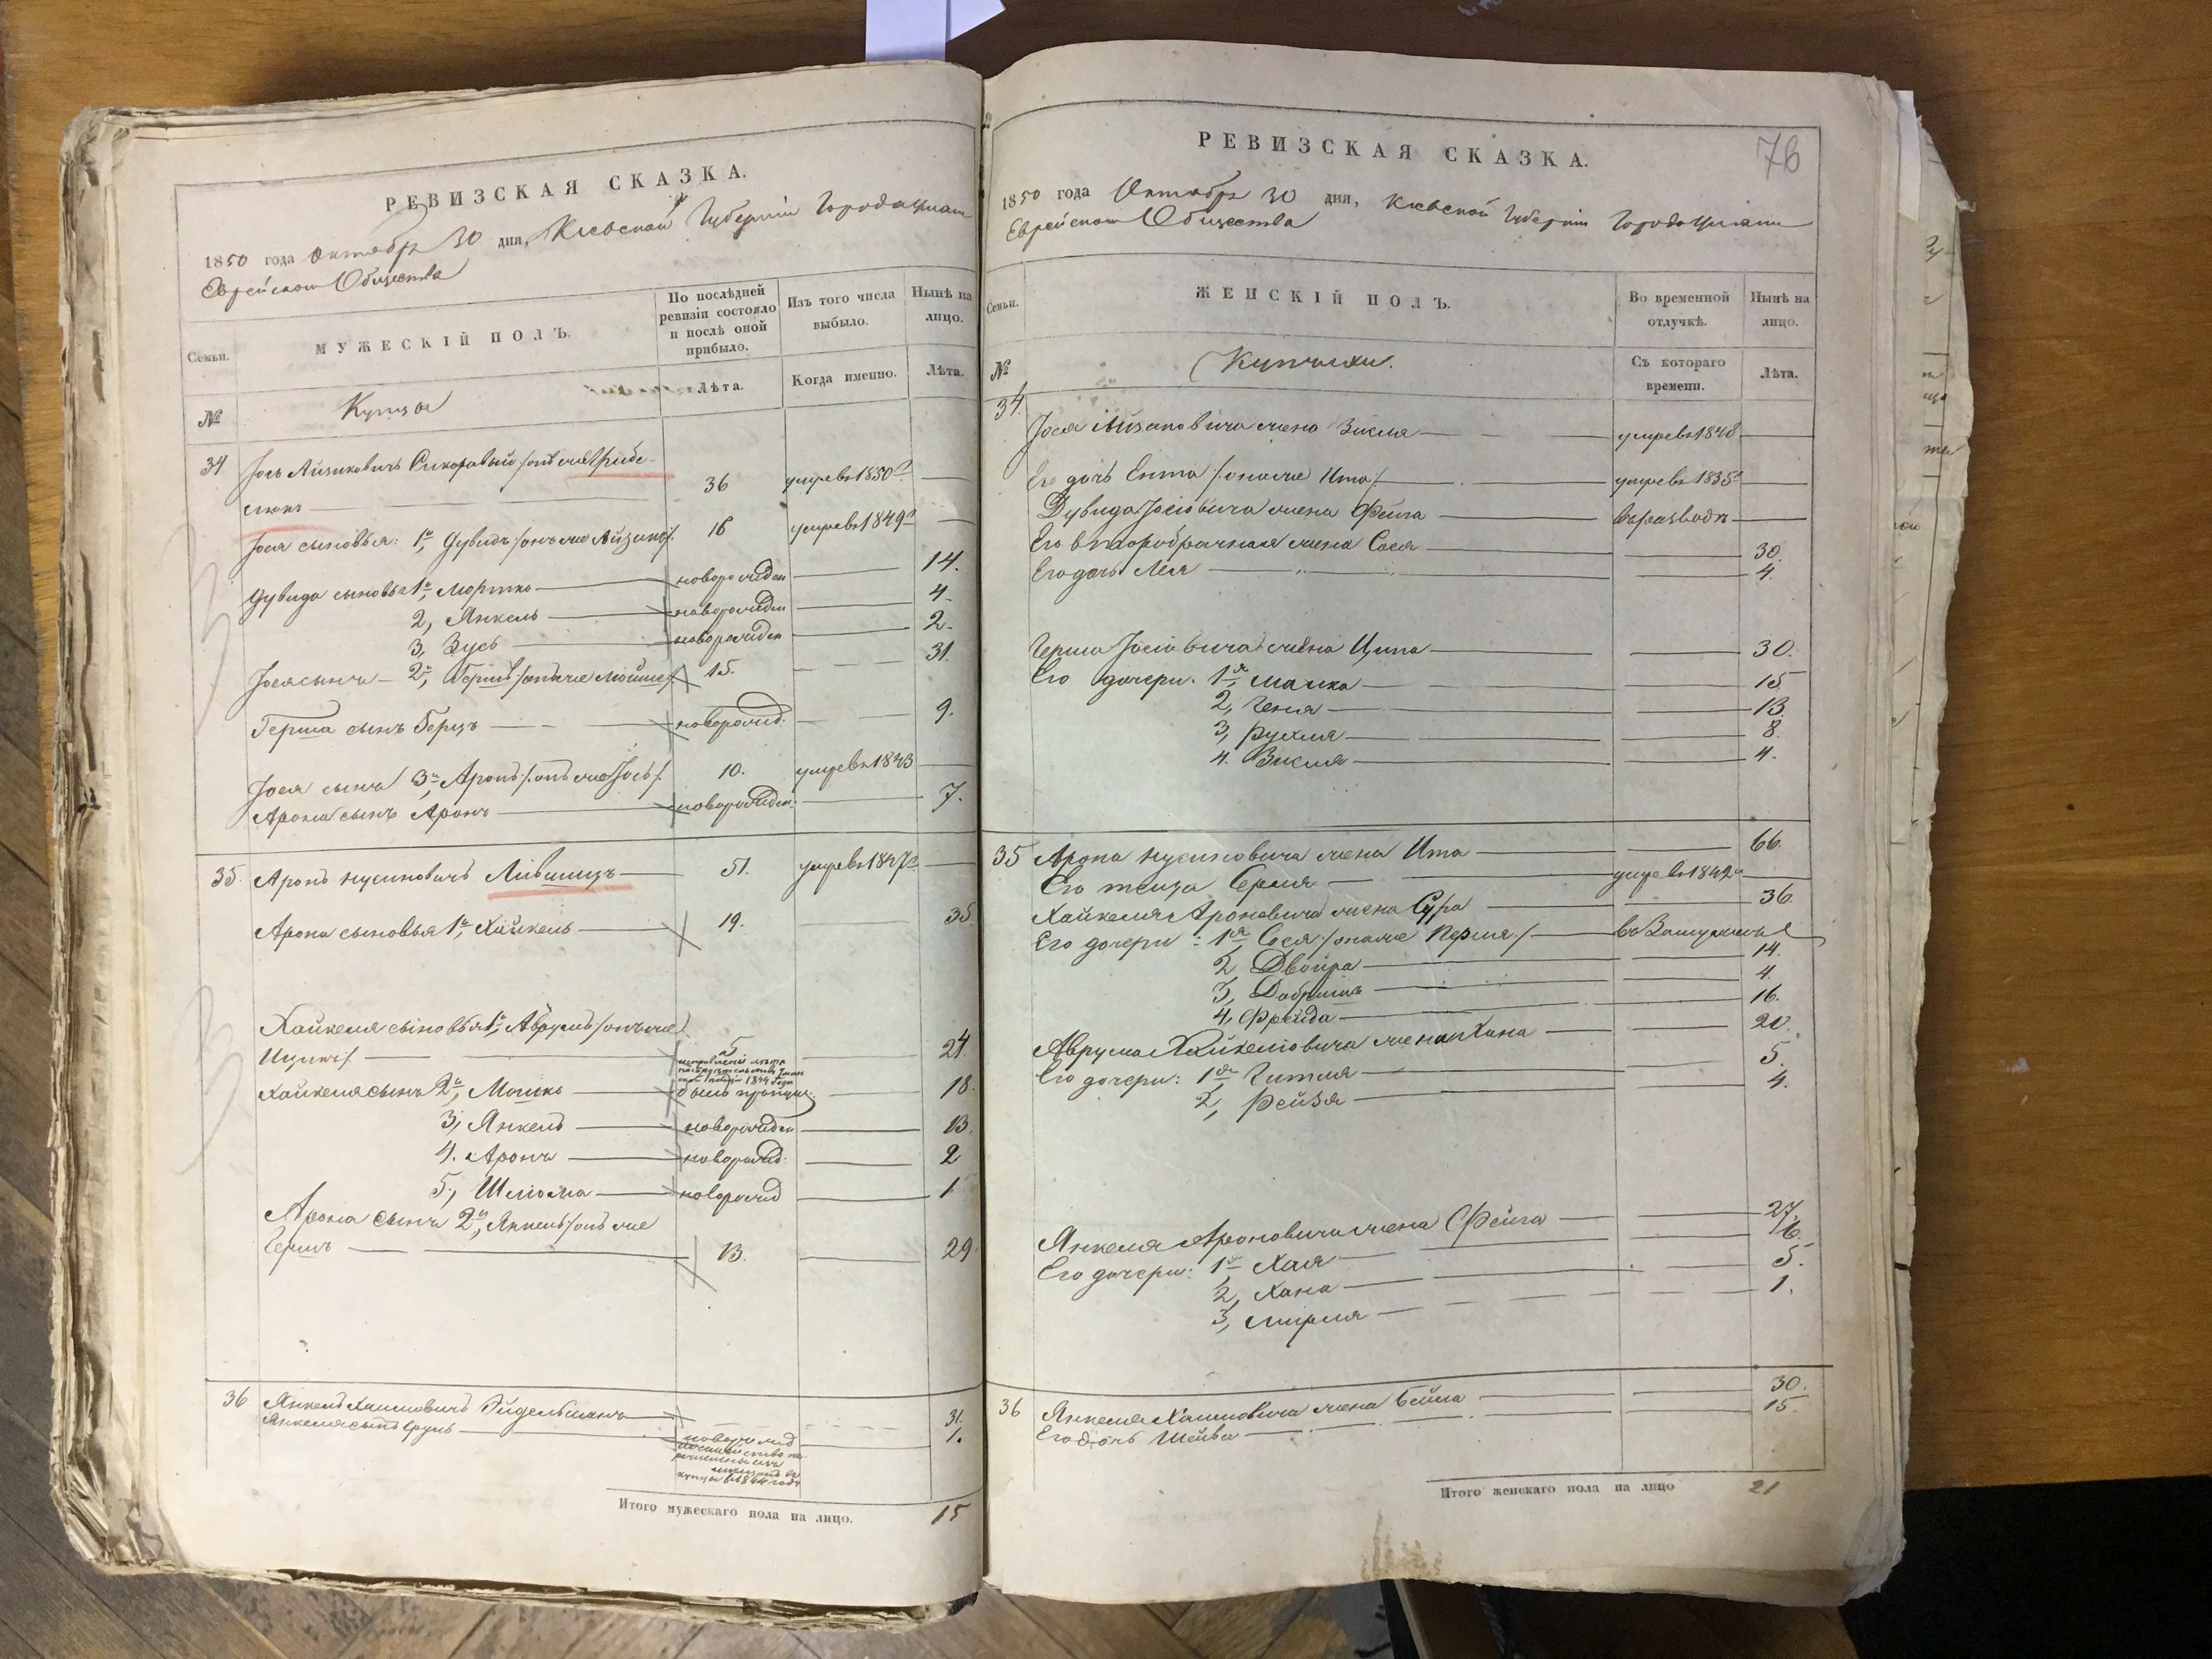 РЕВИЗСКАЯ СКАЗКА.
1850 года Октября 30 дня, Киевской Губерніи Городищенскаго
Еврейскаго Общества
Семьи.
МУЖЕСКІЙ ПОЛЪ.
По послѣдней ревизіи состояло и послѣ оной прибыло.
Изъ того числа выбыло.
Нынѣ на лицо.
№
Купцы
Лѣта.
Когда именно.
Лѣта.
34. Іось Айзиковичъ /онъ же
36 умре въ 1850 г.
Іося сыновья: 1й, Дувидъ /онъ же Айзикъ/. 16 умре въ 1849 г.
Дувида сыновья 1й, Мортко новорожден 14.
2, Янкель новорожден 4
3, Зусь новорожден 2.
Іося сынъ 2й, Гершъ /онъ же Мошие/ 15. 31.
Герша сынъ Берцъ новорожд. 9.
Іося сынъ 3й, Аронъ /онъ же Іось/. 10. умре въ 1843
Арона сынъ Аронъ новорожден. 7.
35. Аронъ Нусиновичъ Лившицъ 51. умре въ 1847 г.
Арона сыновья 1й, Хайкель 19. 35
Хайкеля сыновья 1й, Аврумъ /онъ же
Ицикъ/ 5 24
Хайкеля сынъ 2й, Мошко былъ пропущ. 18.
3, Янкель новорожден 13.
4. Аронъ новорожд. 2
5, Шліома новорожд 1
Арона сынъ 2й, Янкель /онъ же
Гершъ 13. 29.
36 Янкель Хаимовичъ Эйдельманъ 31.
Янкеля сынъ Сруль новорожд 1.
купцы въ 1844 году
Итого мужескаго пола на лицо. 15
76
РЕВИЗСКАЯ СКАЗКА.
1850 года Октября 30 дня, Киевской Губерніи Городищенскаго
Еврейскаго Общества
Семьи.
ЖЕНСКІЙ ПОЛЪ.
Во временной отлучкѣ.
Нынѣ на лицо.
№
Съ котораго времени.
Лѣта.
34.
Іося Айзиковича жена Зисля умре въ 1848
Его дочь Ента /она же Ита/ умре въ 1835 г
Дувида Іосіовича жена Фейга въ разводѣ
Его второбрачная жена Сося 30.
Его дочь Лея 4.
Герша Іосіовича жена Ципа 30.
Его дочери: 1я, Малка 15
2, Геня 13.
3, Рухля 8.
4. Зисля 4.
35 Арона Нусиновича жена Ита 66.
Его теща Перля умре въ 1842 г
Хайкеля Ароновича жена Сура 36.
Его дочери: 1я, Сося /она же Перля/ въ Замужествѣ
2, Двойра 14.
3, Добришъ 4.
4, Фрейда 16.
Аврума Хайкеліовича жена Хана 20.
Его дочери: 1я, Гитля 5.
2, Рейзя 4.
Янкеля Ароновича жена Фейга 27.
Его дочери: 1я, Хая 6.
2, Хана 5.
3, Мирля 1.
36 Янкеля Хаимовича жена Бейла 30.
Его дочь Шейва 15.
Итого женскаго пола на лицо 21